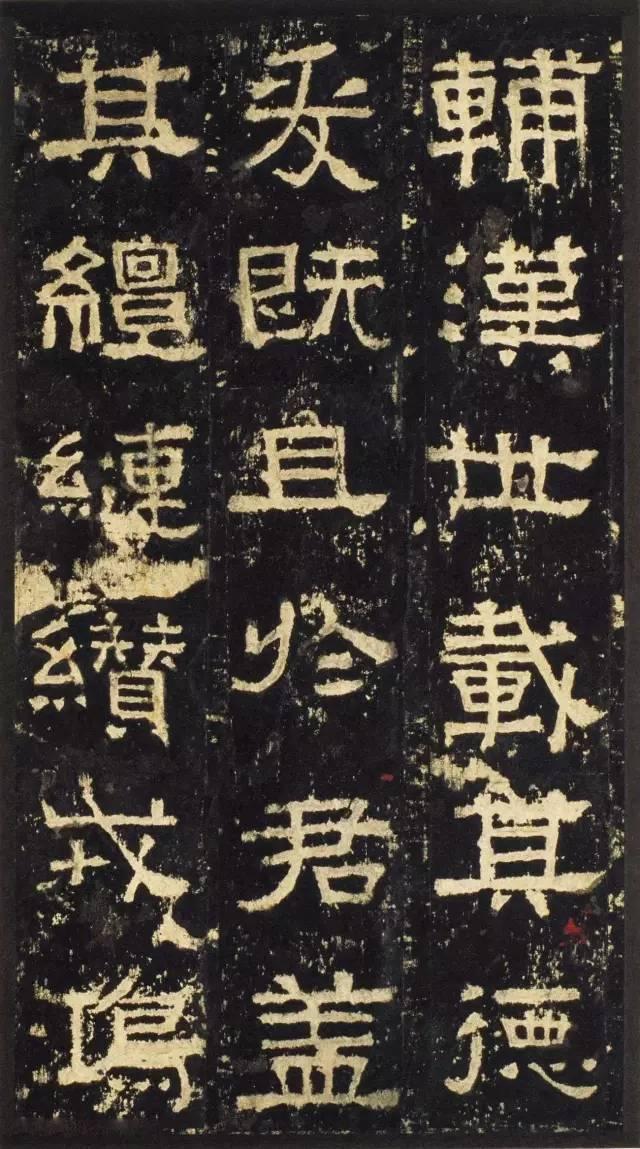 輔漢世載其德
爰既且於君盖
其繵縺纘戎鴻